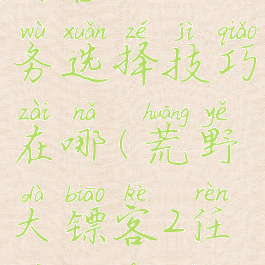 wù xuǎn zé jì qiǎo
务选择技巧
zài nǎ huāng yě
在哪(荒野
dà biāo kè rèn
大镖客2任